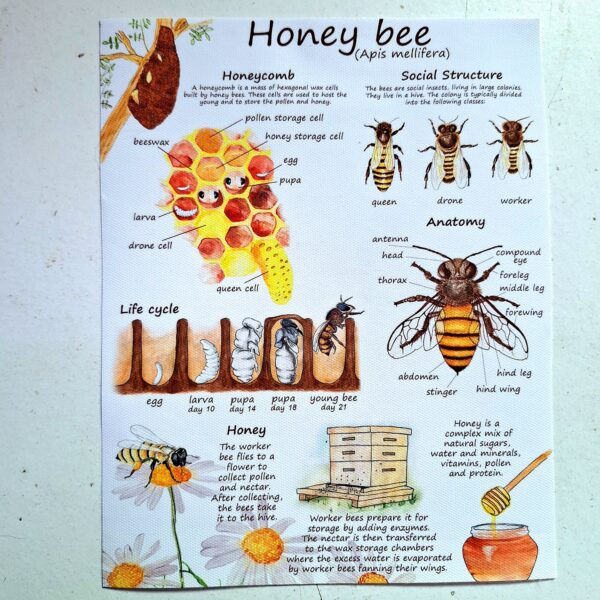 Honey bee
(Apis mellifera)
Honeycomb
A honeycomb is a mass of hexagonal wax cells
built by honey bees. These cells are used to host the
young and to store the pollen and honey.
pollen storage cell
honey storage cell
beeswax
egg
pupa
larva
drone cell
queen cell
Social Structure
The bees are social insects, living in large colonies.
They live in a hive. The colony is typically divided
into the following classes:
queen
drone
worker
Anatomy
antenna
head
compound
eye
foreleg
thorax
middle leg
forewing
abdomen
hind leg
stinger
hind wing
Life cycle
egg
larva
day 10
pupa
day 14
pupa
day 18
young bee
day 21
Honey
The worker
bee flies to a
flower to
collect pollen
and nectar.
After collecting,
the bees take
it to the hive.
Worker bees prepare it for
storage by adding enzymes.
The nectar is then transferred
to the wax storage chambers
where the excess water is evaporated
by worker bees fanning their wings.
Honey is a
complex mix of
natural sugars,
water and minerals,
vitamins, pollen
and protein.